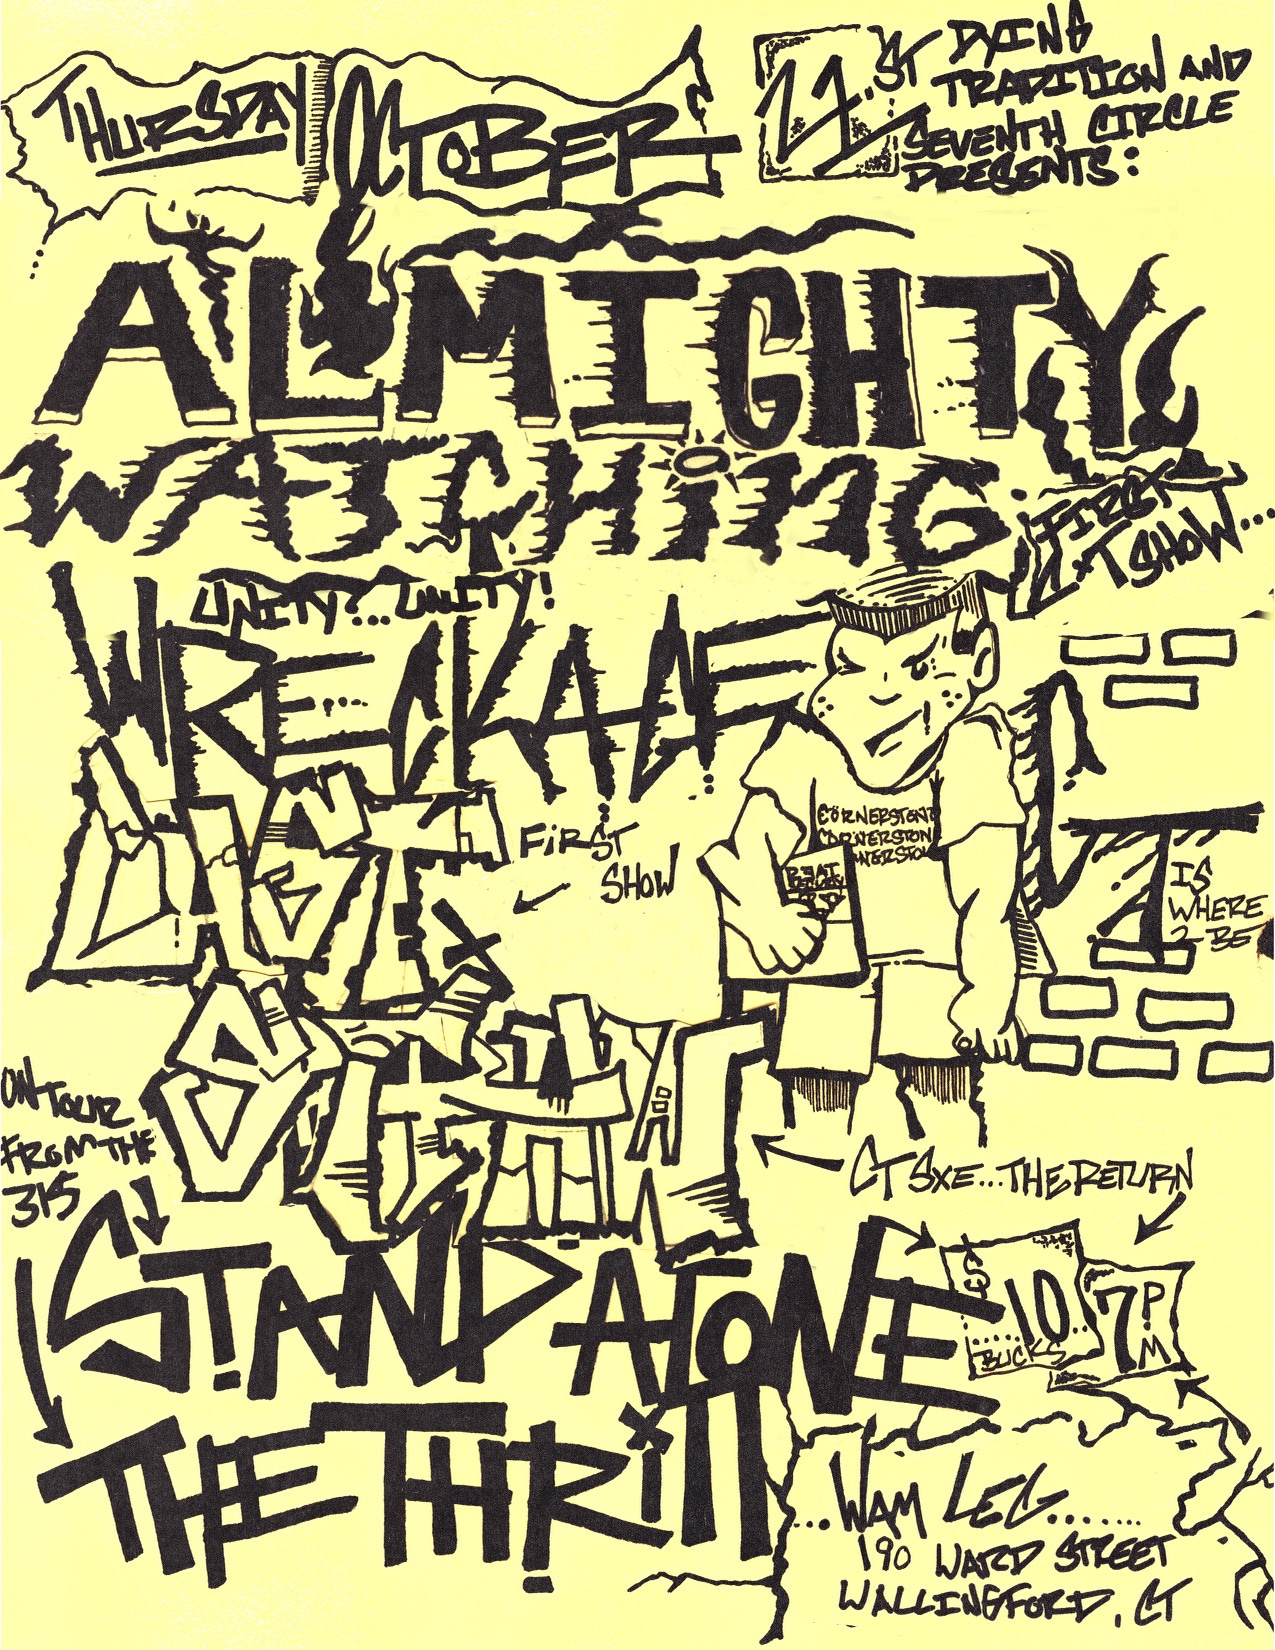 THURSDAY OCTOBER 21.ST
DYING
TRADITION AND
SEVENTH CIRCLE
PRESENTS:
ALMIGHTY
WATCHING
FIRST
CT SHOW...
UNITY?... UNITY!
WRECKAGE
FIRST
SHOW
CORNERSTONE
CORNERSTON
NERSTO
CT
IS
WHERE
2 BE
ON TOUR
FROM THE
315
CT SXE... THE RETURN
STAND ALONE
$10
BUCKS
7 PM
THE THRILL
...WAM LEG........
190 WARD STREET
WALLINGFORD, CT